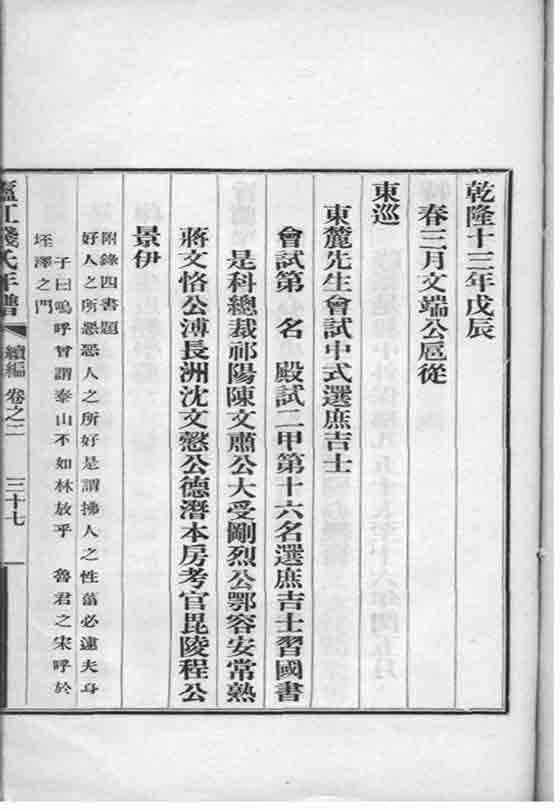 乾隆十三年戊辰
春三月文端公扈從
東巡
東麓先生會試中式選庶吉士
會試第 名 殿試二甲第十六名選庶吉士習國書
是科總裁祁陽陳文肅公大受剛烈公鄂容安常熟
蔣文恪公溥長洲沈文慤公德潛本房考官毘陵程公
景伊
附錄四書題
好人之所惡惡人之所好是謂拂人之性菑必逮夫身
子曰嗚呼曾謂泰山不如林放乎 魯君之宋呼於
垤澤之門
廬江錢氏年譜 續編 卷之二 三十七